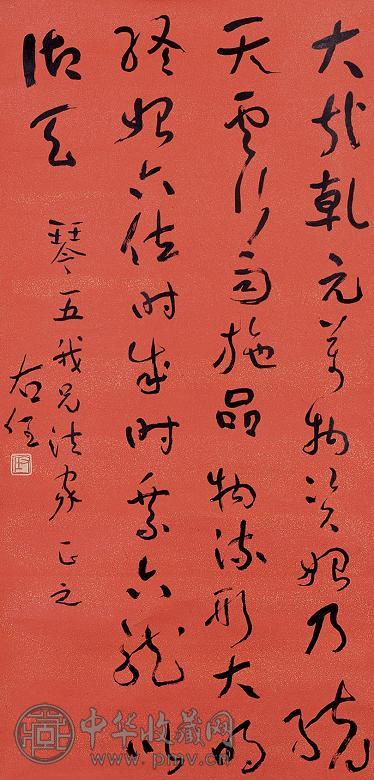 大哉乾元萬物資始乃統
天雲行雨施品物流形大明
終始六位時成時乘六龍以
御天
琴五我兄法家正之
右任
中华收藏网
www.pmv.cn